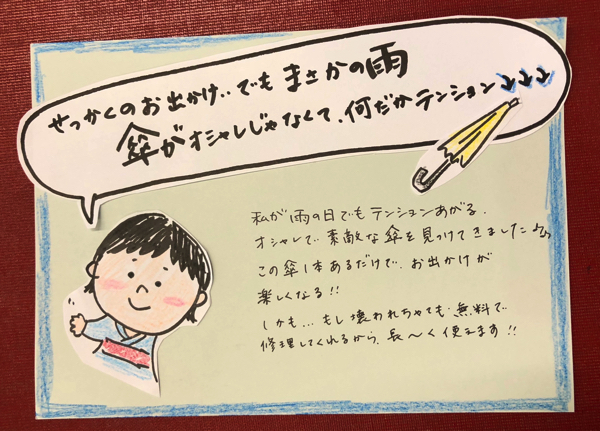 せっかくのお出かけ‥でも まさかの雨
傘がオシャレじゃなくて、何だかテンション↓↓↓
私が雨の日でもテンションあがる、
オシャレで、素敵な傘を見つけてきました♪
この傘1本あるだけで、お出かけが
楽しくなる!!
しかも…もし壊われちゃても、無料で
修理してくれるから、長〜く使えます!!